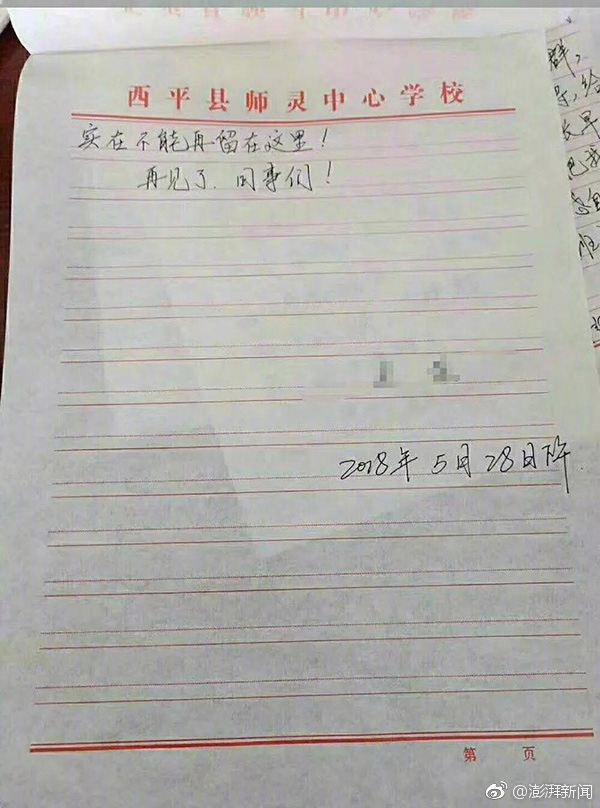 西平县师灵中心学校
实在不能再留在这里！
再见了.同事们！
2018年5月28日下午
第 页
@澎湃新闻